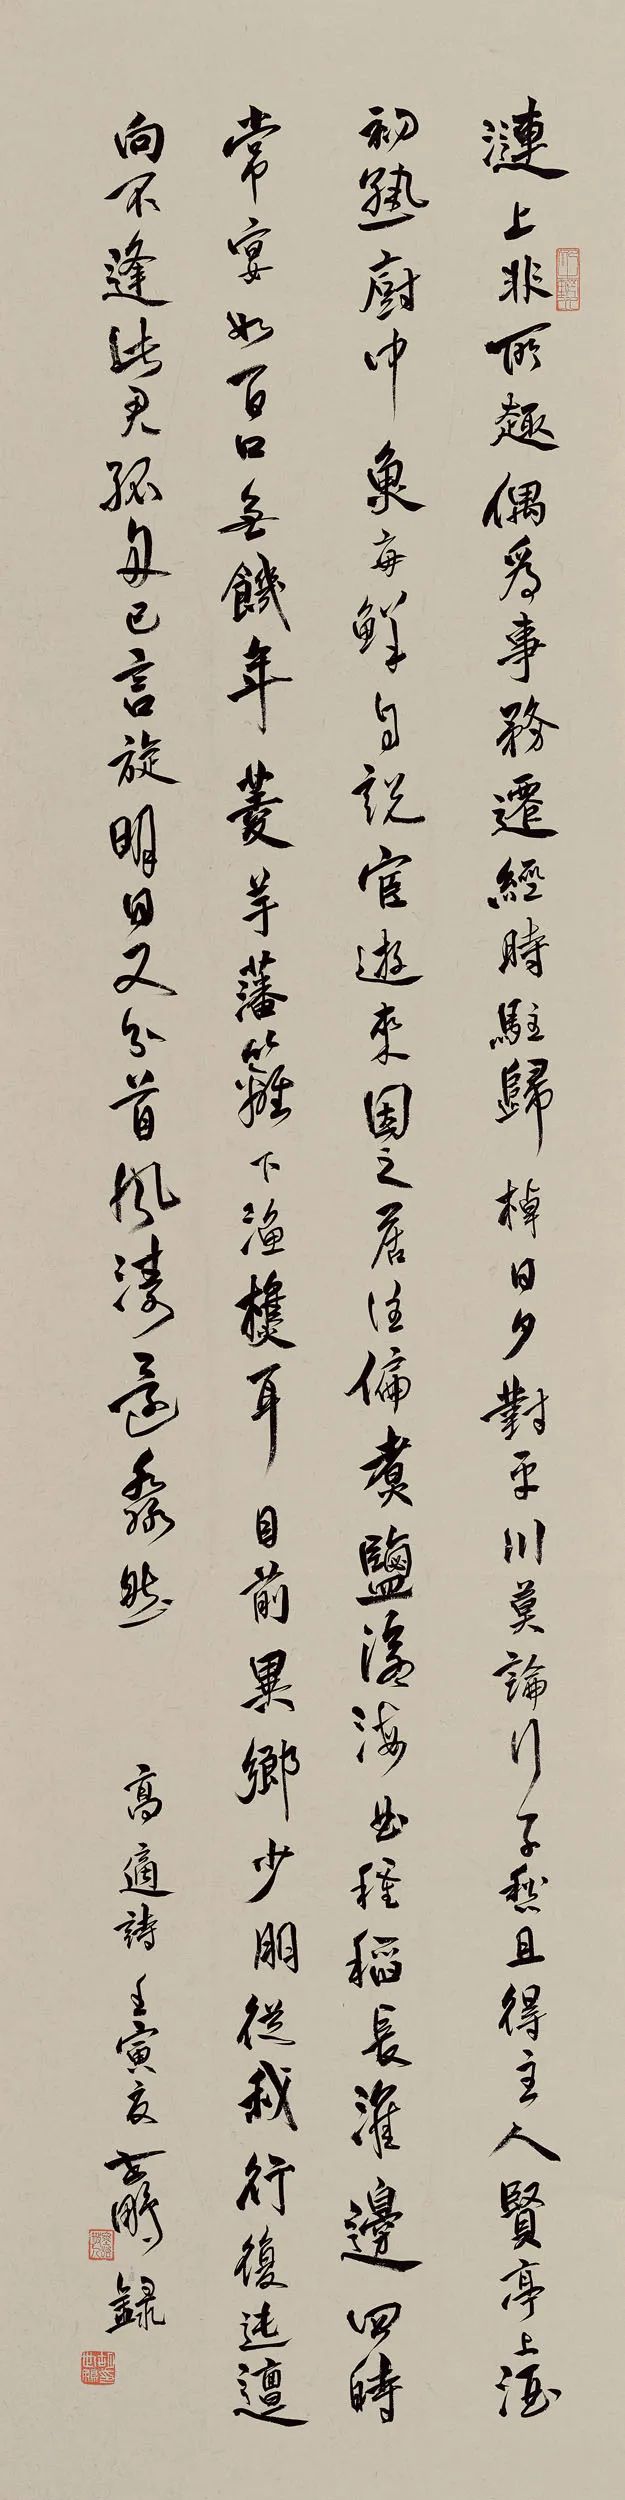 漣上非所趣偶為事務遷經時駐歸棹日夕對平川莫論行子愁且得主人賢亭上酒
初熟廚中魚每鮮自說宦遊來因之居住偏煮鹽滄海曲種稻長淮邊四時
常宴如百口無饑年菱芋藩籬下漁樵耳目前異鄉少朋從我行復迍邅
向不逢此君孤舟已言旋明日又分首風濤還淼然 高適詩 壬寅夏 世鵬錄